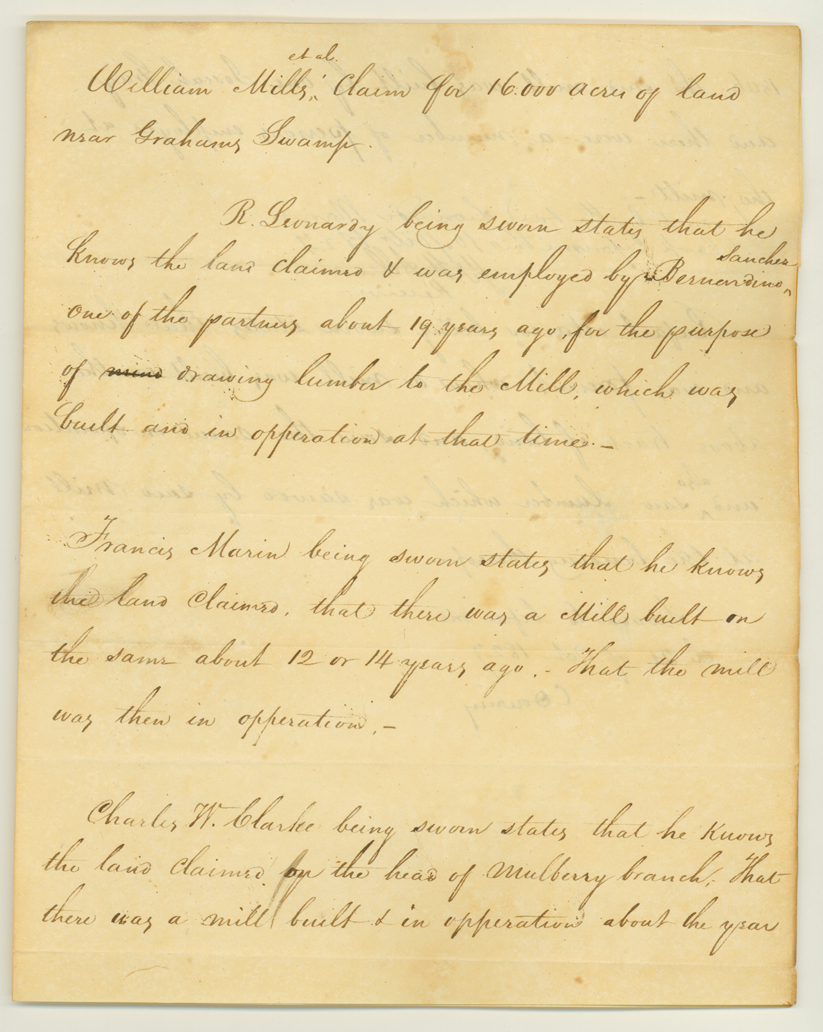 William Mills, et al. Claim for 16.000 acres of land
near Grahams Swamp.
R. Leonardy being sworn states that he
knows the land claimed & was employed by Bernardino Sanchez
one of the partners about 19 years ago, for the purpose
of mind drawing lumber to the Mill, which was
built and in opperation at that time. –
Francis Marin being sworn states that he knows
the land claimed, that there was a Mill built on
the same about 12 or 14 years ago. – That the mill
was then in opperation. –
Charles W. Clarke being sworn states that he knows
the land claimed on the head of Mulberry branch, That
there was a mill built & in opperation about the year